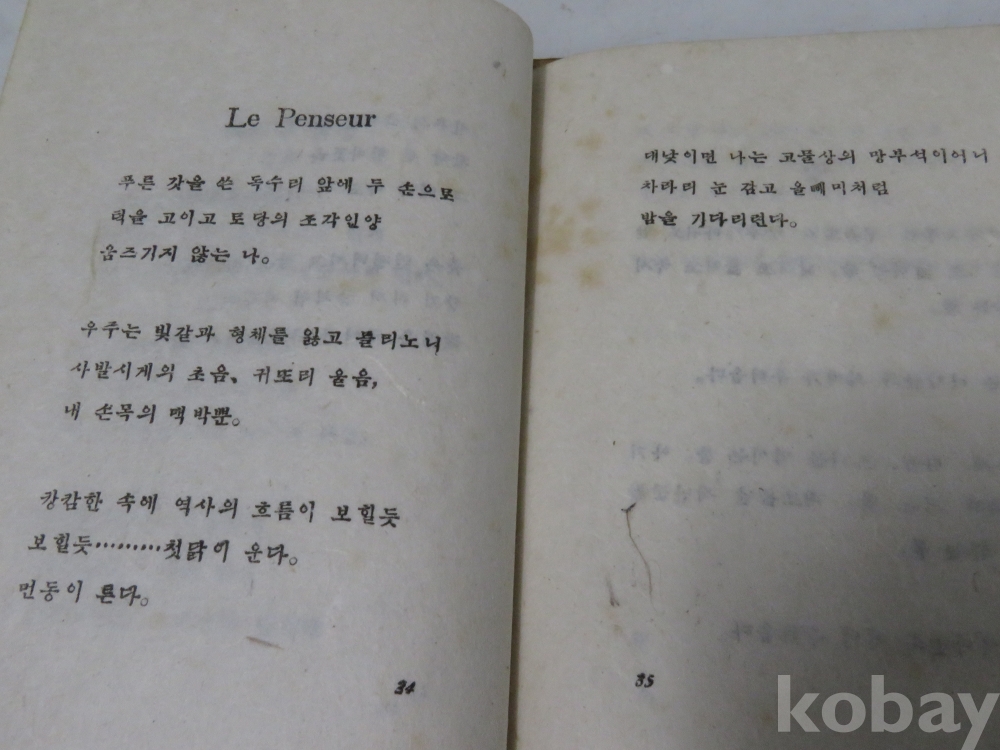 Le Penseur
푸른 갓을 쓴 독수리 앞에 두 손으로
턱을 고이고 토당의 조각인양
움즈기지 않는 나。
우주는 빛갈과 형체를 잃고 물티노니
사발시게의 초음、귀또리 울음,
내 손목의 맥박뿐。
캉캄한 속에 역사의 흐름이 보힐듯
보힐듯………첫닭이 운다。
먼동이 튼다。
34
대낮이면 나는 고물상의 망부석이어니
차라리 눈 감고 올빼미처럼
밤을 기다리련다。
35
kobay